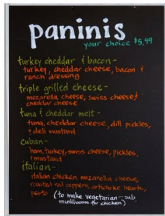 paninis
your choice $5.99
turkey cheddar & bacon-
turkey, cheddar cheese, bacon &
ranch dressing
triple grilled cheese-
mozzarella cheese, swiss cheese &
cheddar cheese
tuna & cheddar melt-
tuna, cheddar cheese, dill pickles,
& deli mustard
cuban-
ham, turkey, swiss cheese, pickles,
& mustard
italian-
italian chicken mozzarella cheese,
roasted red peppers, artichoke hearts,
pesto
(to make vegetarian-sub
mushrooms for chicken)